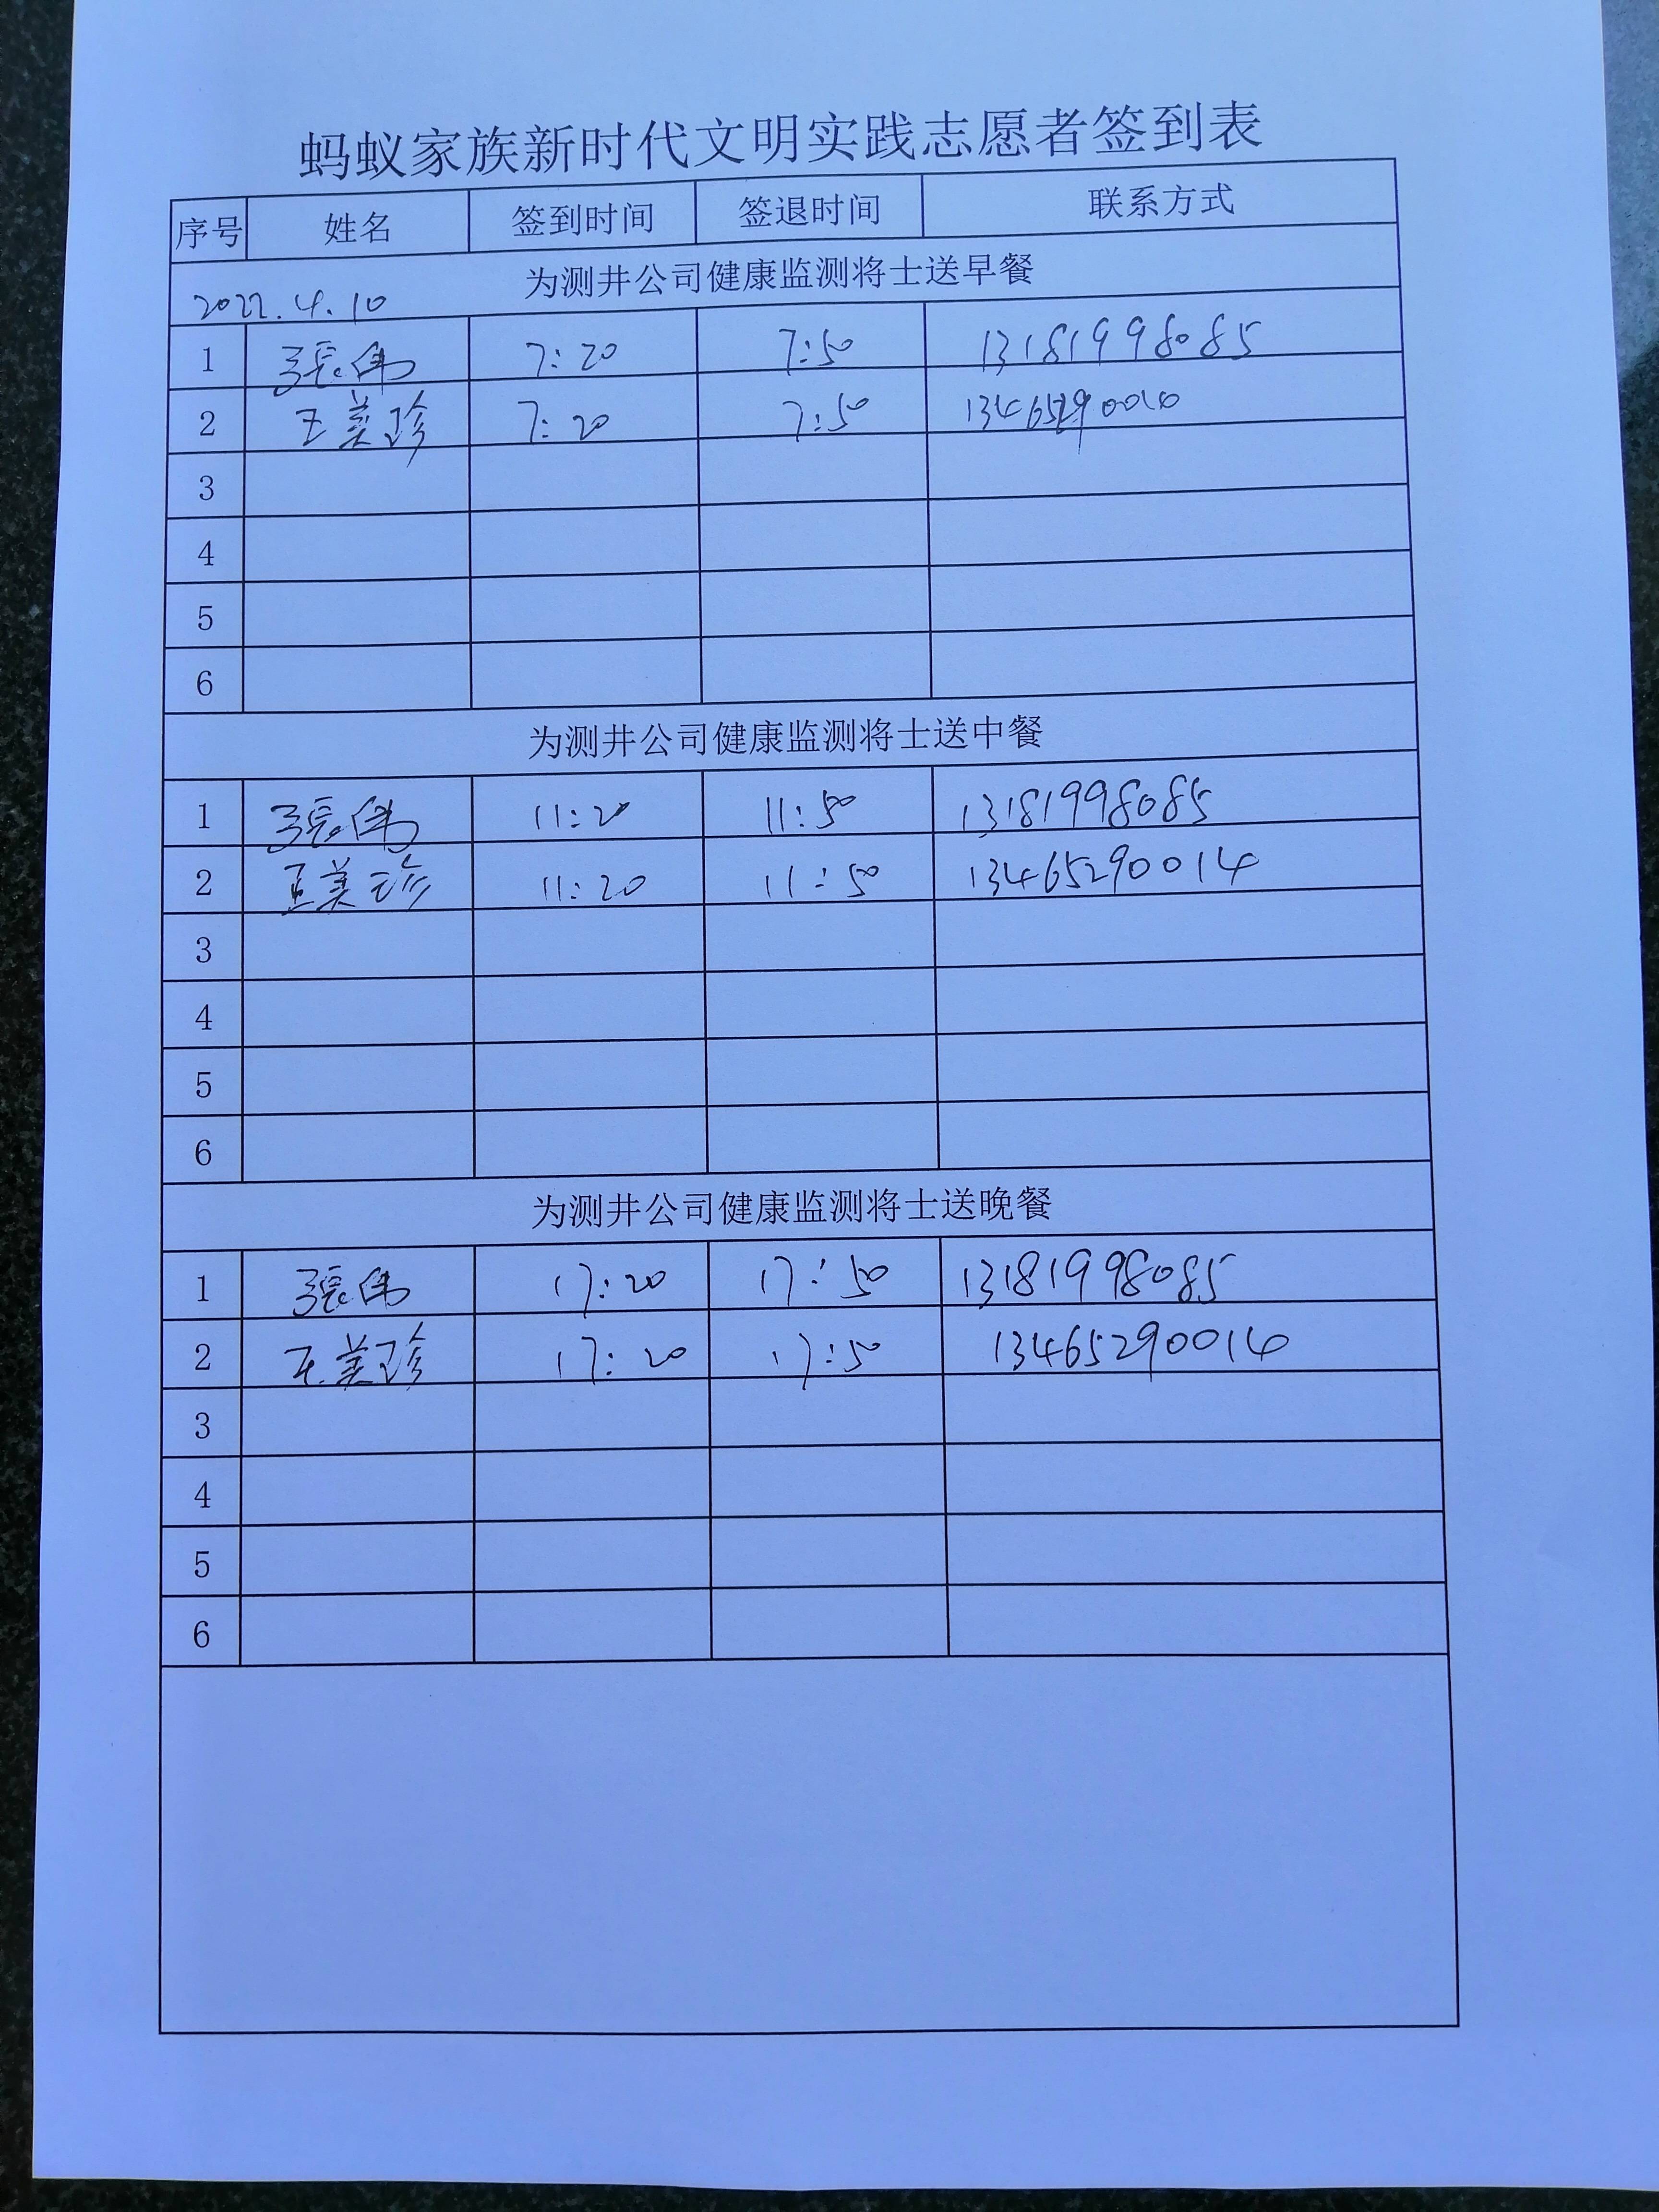 蚂蚁家族新时代文明实践志愿者签到表
序号 姓名 签到时间 签退时间 联系方式
为测井公司健康监测将士送早餐
2022.4.10
1 張伟 7:20 7:50 13181998085
2 王美珍 7:20 7:50 13465290014
3
4
5
6
为测井公司健康监测将士送中餐
1 張伟 11:20 11:50 13181998085
2 王美珍 11:20 11:50 13465290014
3
4
5
6
为测井公司健康监测将士送晚餐
1 張伟 17:20 17:50 13181998085
2 王美珍 17:20 17:50 13465290014
3
4
5
6